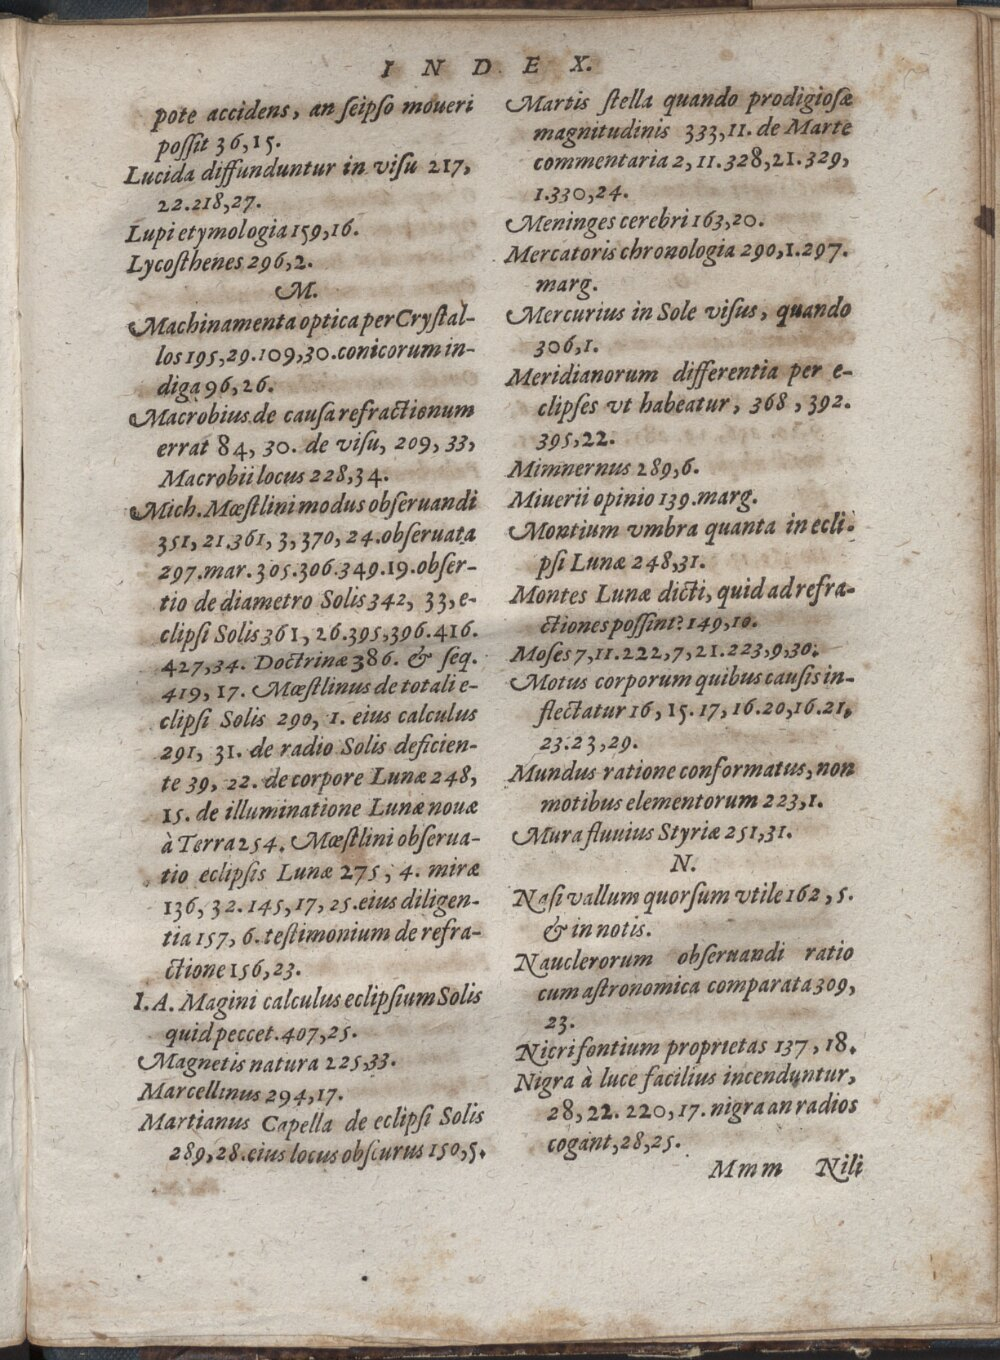 INDEX.
pote accidens, an ſeipſo moueri
poſſit 36,15.
Lucida diffunduntur in viſu 217,
22.218,27.
Lupi etymologia 159,16.
Lycoſthenes 296,2.
M.
Machinamenta optica per Cryſtal-
los 195,29.109,30.conicorum in-
diga 96,26.
Macrobius de cauſa refractionum
errat 84, 30. de viſu, 209, 33,
Macrobii locus 228,34.
Mich. Mœſtlini modus obſeruandi
351, 21.361, 3, 370, 24.obſeruata
297.mar.305.306.349.19.obſer-
tio de diametro Solis 342, 33, e-
clipſi Solis 361, 26.395,396.416.
427,34. Doctrinæ 386. & ſeq.
419, 17. Mœſtlinus de totali e-
clipſi Solis 290, 1. eius calculus
291, 31. de radio Solis deficien-
te 39, 22. de corpore Lunæ 248,
15. de illuminatione Lunæ nouæ
à Terra 254. Mœſtlini obſerua-
tio eclipſis Lunæ 275, 4. miræ
136, 32.145,17,25.eius diligen-
tia 157, 6. teſtimonium de refra-
ctione 156,23.
I. A. Magini calculus eclipſium Solis
quid peccet.407,25.
Magnetis natura 225,33.
Marcellinus 294,17.
Martianus Capella de eclipſi Solis
289,28.eius locus obſcurus 150,5.
Martis ſtella quando prodigioſæ
magnitudinis 333,11. de Marte
commentaria 2, 11.328,21.329,
1.330,24.
Meninges cerebri 163,20.
Mercatoris chronologia 290,1.297.
marg.
Mercurius in Sole viſus, quando
306,1.
Meridianorum differentia per e-
clipſes vt habeatur, 368, 392.
395,22.
Mimnernus 289,6.
Miuerii opinio 139.marg.
Montium vmbra quanta in ecli-
pſi Lunæ 248,31.
Montes Lunæ dicti, quid ad refra-
ctiones poſſint? 149,10.
Moſes 7,11.222,7,21.223,9,30.
Motus corporum quibus cauſis in-
flectatur 16, 15. 17, 16.20,16.21,
23.23,29.
Mundus ratione conformatus, non
motibus elementorum 223,1.
Mura fluuius Styriæ 251,31.
N.
Naſi vallum quorſum vtile 162, 5.
& in notis.
Nauclerorum obſeruandi ratio
cum aſtronomica comparata 309,
23.
Nicri fontium proprietas 137, 18.
Nigra à luce facilius incenduntur,
28, 22. 220, 17. nigra an radios
cogant, 28,25.
Mmm Nili